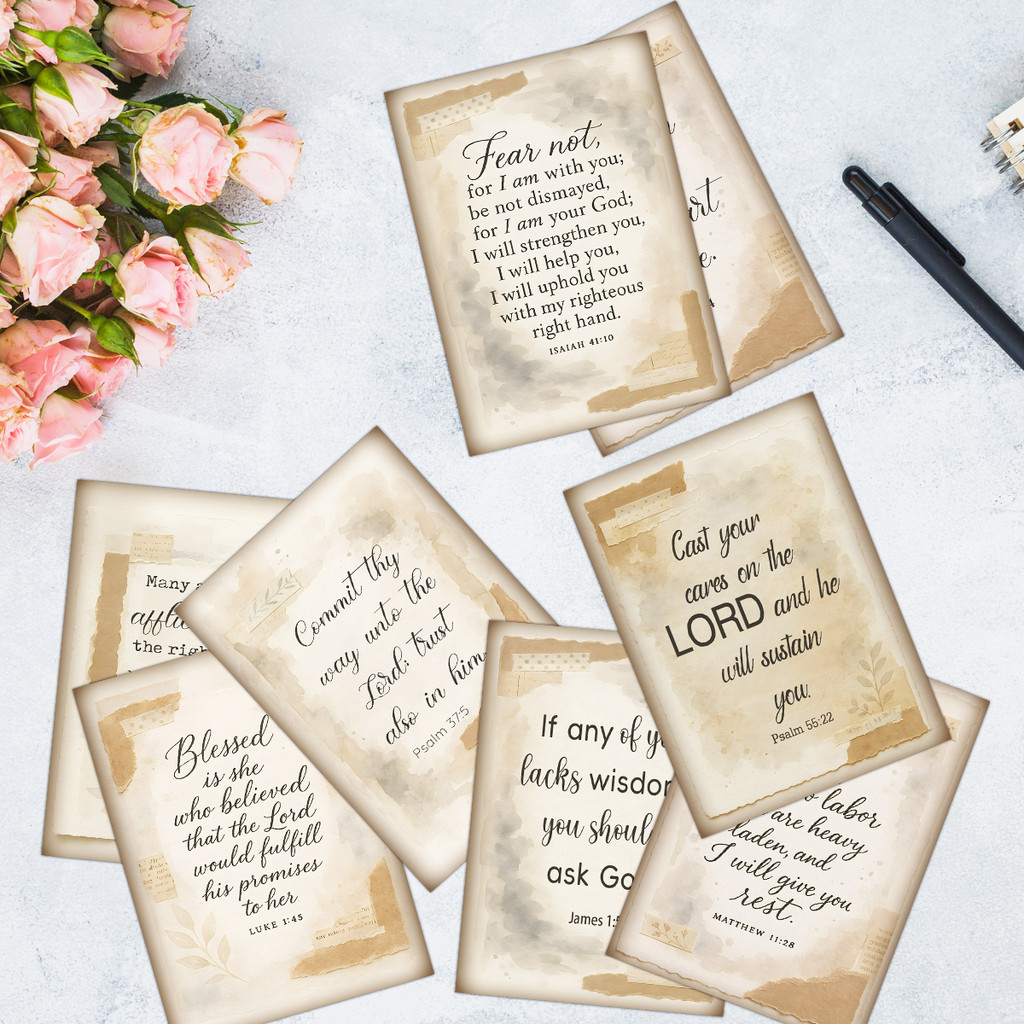 Fear not,
for I am with you;
be not dismayed,
for I am your God;
I will strengthen you,
I will help you,
I will uphold you
with my righteous
right hand.
ISAIAH 41:10
Cast your
cares on the
LORD and he
will sustain
you.
Psalm 55:22
Many
the
Commit thy
way unto the
Lord; trust
also in him
Psalm 37:5
Blessed
is she
who believed
that the Lord
would fulfill
his promises
to her
LUKE 1:45
If any of
lacks
you
ask
James
labor
are heavy
laden, and
I will give you
rest.
MATTHEW 11:28